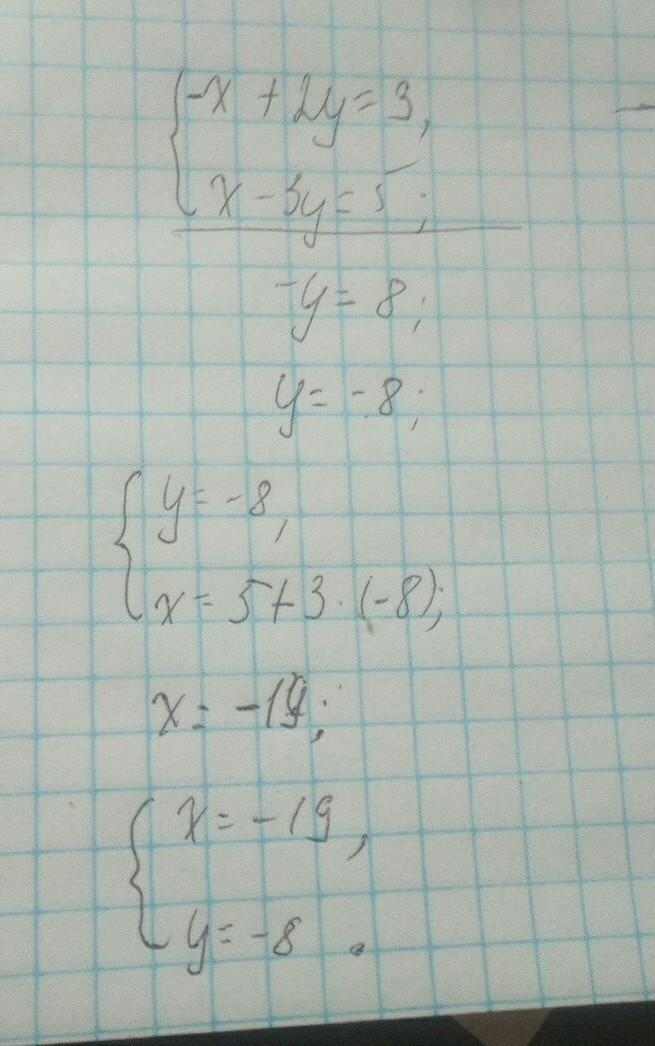 {-x + 2y = 3,
x - 3y = 5;
-y = 8;
y = -8;
{y = -8,
x = 5 + 3 · (-8);
x = -19;
{x = -19,
y = -8.